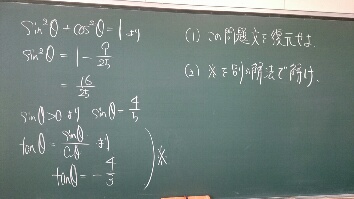 sin²θ + cos²θ = 1 より
sin²θ = 1 - 9/25
= 16/25
sinθ>0 より sinθ = 4/5
tanθ = sinθ/cosθ より
tanθ = - 4/3
※
(1) この問題文を復元せよ.
(2) ※を別の解法で解け.